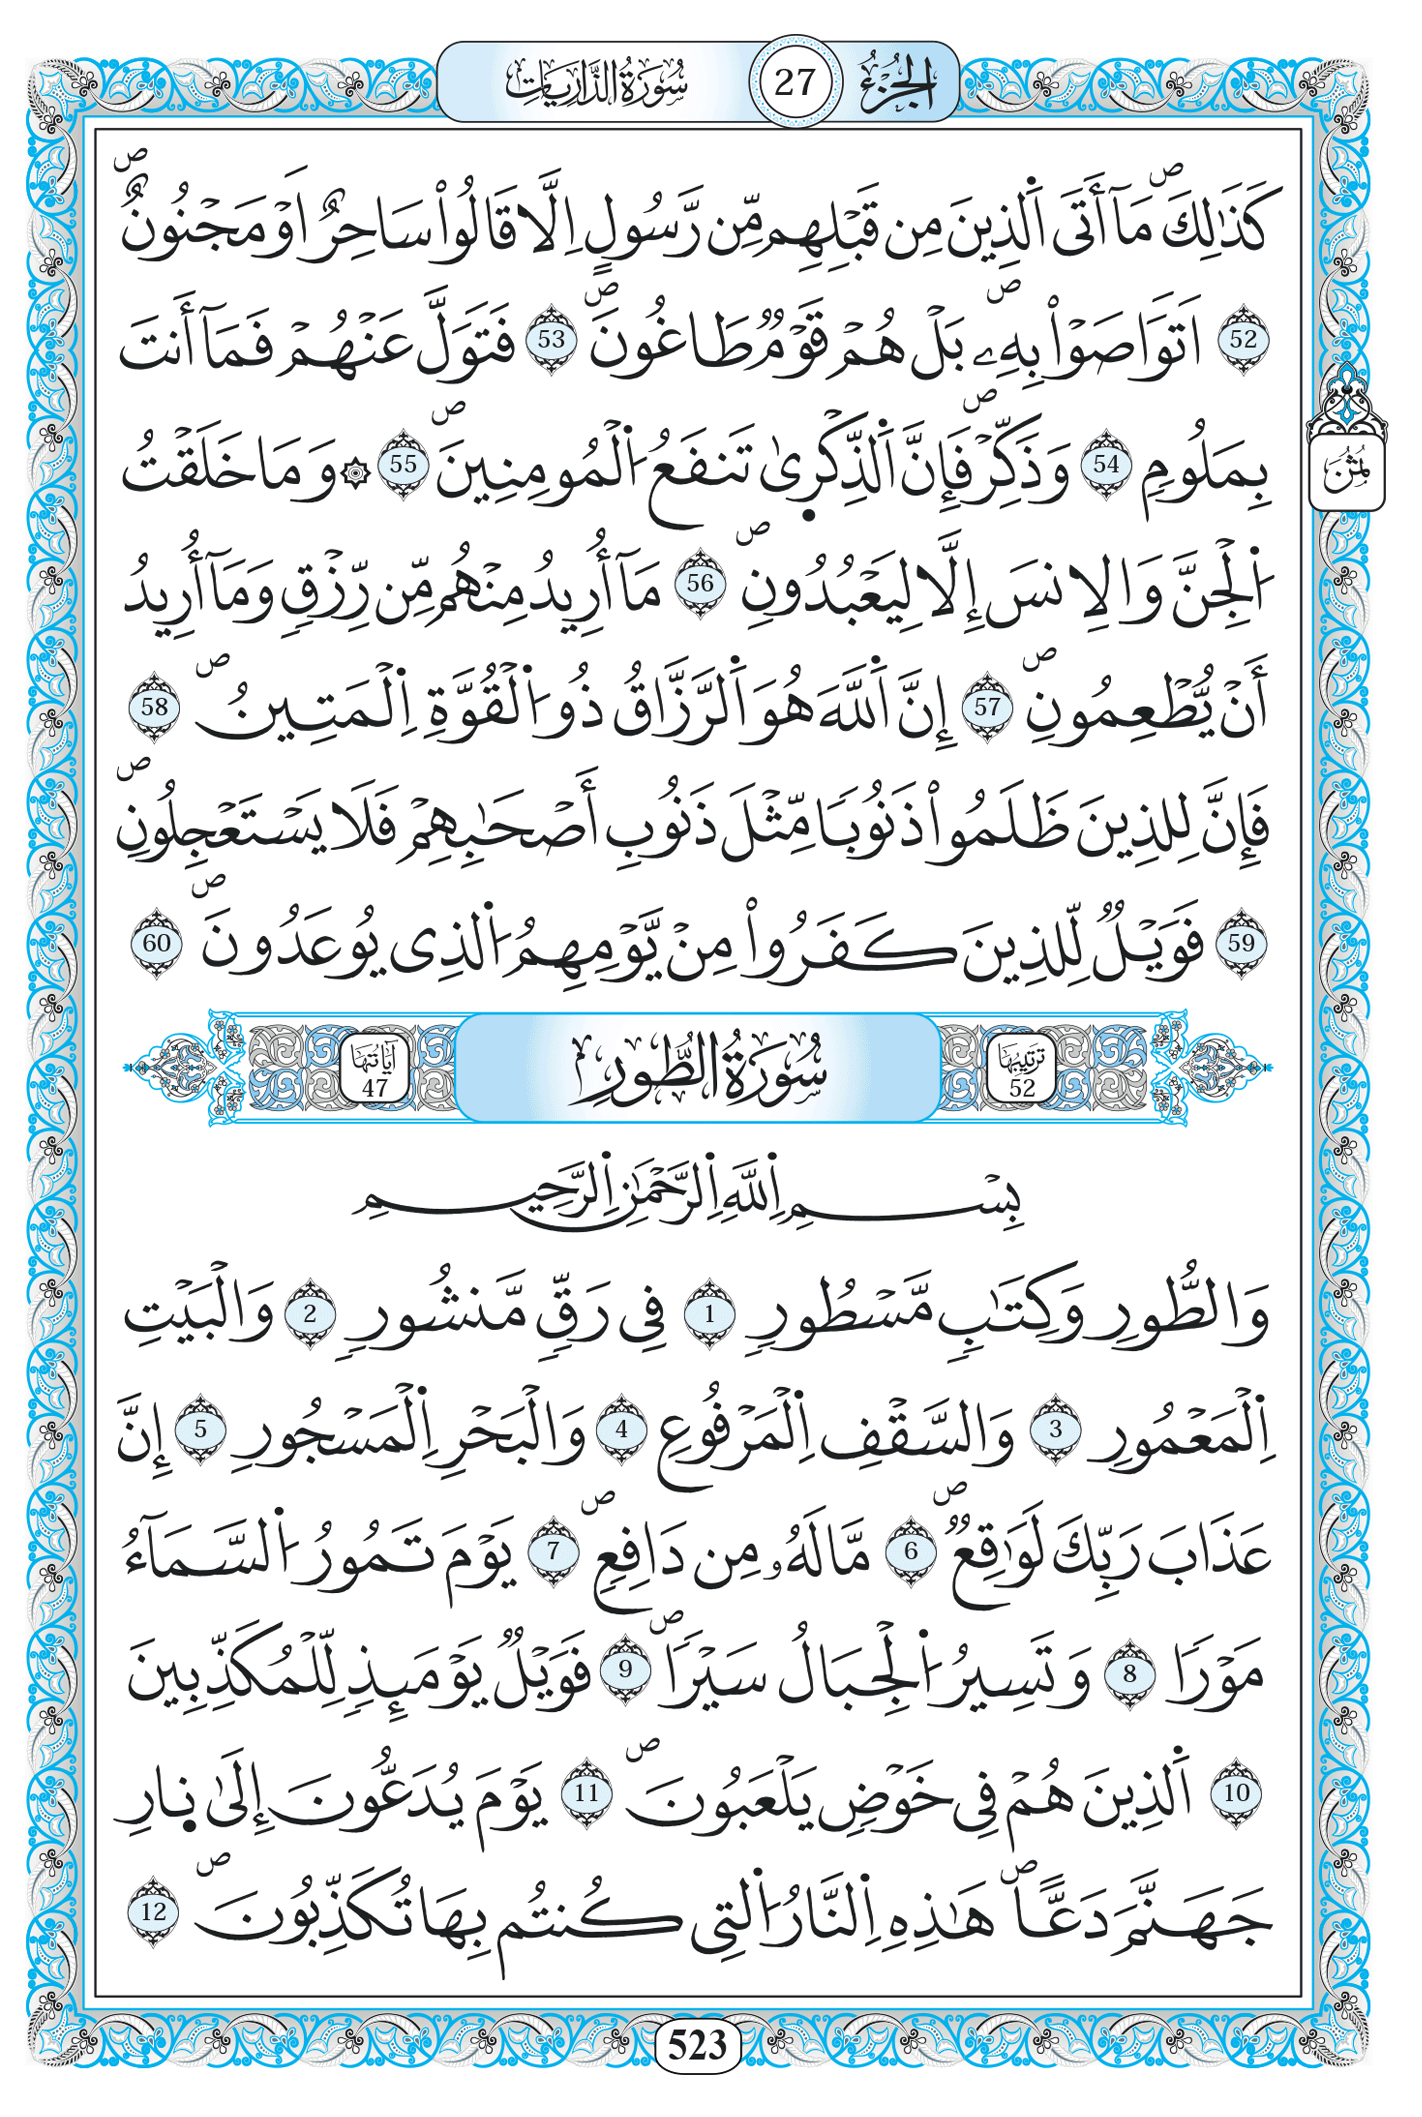 الجزء 27 سورة الذاريات
كَذَٰلِكَ ۖ مَآ أَتَى اَ۬لذِينَ مِن قَبْلِهِم مِّن رَّسُولٍ اِلَّا قَالُواْ سَاحِرٌ اَوْ مَجْنُونٌ ۖ
52 اَتَوَاصَوْاْ بِهِۦ ۖ بَلْ هُمْ قَوْمٞ طَاغُونَ ۖ 53 فَتَوَلَّ عَنْهُمْ فَمَآ أَنتَ
بِمَلُومٖ 54 وَذَكِّرْ ۖ فَإِنَّ اَ۬لذِّكْر۪ىٰ تَنفَعُ اُ۬لْمُومِنِينَ ۖ 55 ۞ وَمَا خَلَقْتُ
لثمن
اُ۬لْجِنَّ وَالِانسَ إِلَّا لِيَعْبُدُونِ ۖ 56 مَآ أُرِيدُ مِنْهُم مِّن رِّزْقٖ وَمَآ أُرِيدُ
أَنْ يُّطْعِمُونِ ۖ 57 إِنَّ اَ۬للَّهَ هُوَ اَ۬لرَّزَّاقُ ذُو اُ۬لْقُوَّةِ اِ۬لْمَتِينُ ۖ 58
فَإِنَّ لِلذِينَ ظَلَمُواْ ذَنُوبٗا مِّثْلَ ذَنُوبِ أَصْحَٰبِهِمْ فَلَا يَسْتَعْجِلُونِ ۖ
59 فَوَيْلٞ لِّلذِينَ كَفَرُواْ مِنْ يَّوْمِهِمُ اُ۬لذِى يُوعَدُونَ ۖ 60
ترتيبها 52 سورة الطور آياتها 47
بِسْمِ اِ۬للَّهِ اِ۬لرَّحْمَٰنِ اِ۬لرَّحِيمِ
وَالطُّورِ وَكِتَٰبٖ مَّسْطُورٖ 1 فِى رَقّٖ مَّنشُورٖ 2 وَالْبَيْتِ
اِ۬لْمَعْمُورِ 3 وَالسَّقْفِ اِ۬لْمَرْفُوعِ 4 وَالْبَحْرِ اِ۬لْمَسْجُورِ 5 إِنَّ
عَذَابَ رَبِّكَ لَوَٰقِعٞ ۖ 6 مَّا لَهُۥ مِن دَافِعٖ ۖ 7 يَوْمَ تَمُورُ اُ۬لسَّمَآءُ
مَوْرٗا 8 وَتَسِيرُ اُ۬لْجِبَالُ سَيْرٗا ۖ 9 فَوَيْلٞ يَوْمَئِذٖ لِّلْمُكَذِّبِينَ
10 اَ۬لذِينَ هُمْ فِى خَوْضٖ يَلْعَبُونَ ۖ 11 يَوْمَ يُدَعُّونَ إِلَىٰ ن۪ارِ
جَهَنَّمَ دَعّاً ۖ هَٰذِهِ اِ۬لنَّارُ اُ۬لتِى كُنتُم بِهَا تُكَذِّبُونَ ۖ 12
523